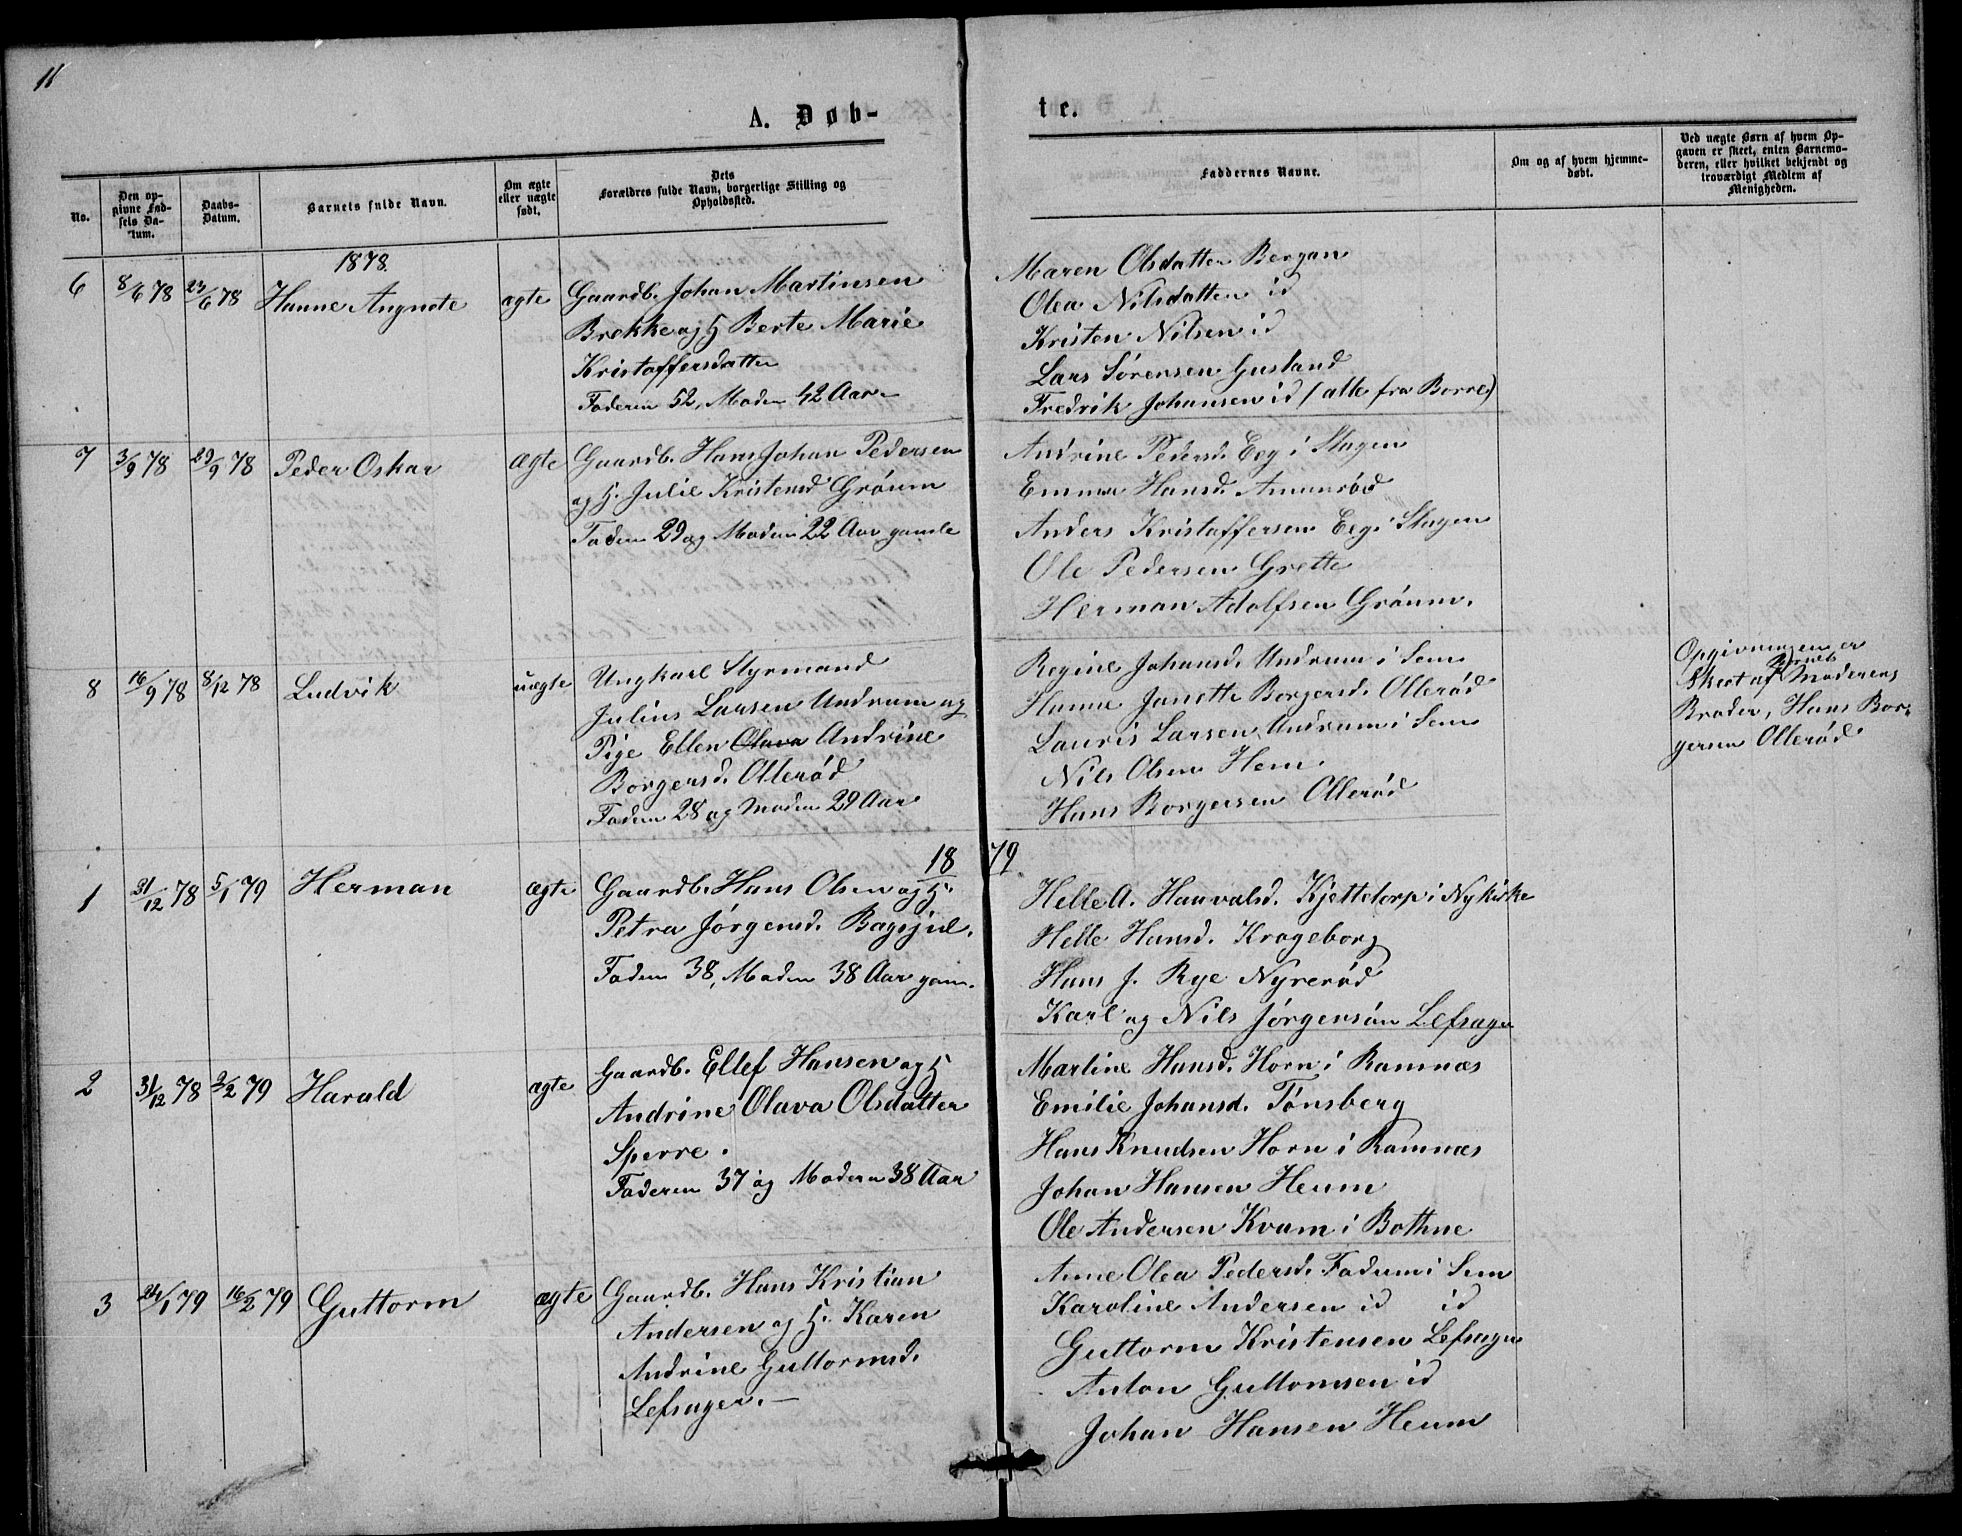 11
A. Døb-
te.
No.
Den op-
givne Fød-
sels Da-
tum.
Daabs-
Datum.
Barnets fulde Navn.
Om ægte
eller uægte
født.
Dets
Forældres fulde Navn, borgerlige Stilling og
Opholdssted.
Faddernes Navne.
Om og af hvem hjemme-
døbt.
Ved uægte Børn af hvem Op-
gaven er skeet, enten Barnemo-
deren, eller hvilket bekjendt og
troværdigt Medlem af
Menigheden.
1878.
6 8/6 78 23/6 78 Hanne Angnete ægte
Gaardb. Johan Martinsen
Brekke og H Berte Marie
Kristoffersdatter
Faderen 52, Moden 42 Aar
Maren Olsdatter Bergan
Olea Nilsdatter id
Kristen Nilsen id
Lars Sørensen Gusland
Fredrik Johansen id (alle fra Borre)
7 3/9 78 29/9 78 Peder Oskar ægte
Gaardb. Hans Johan Pedersen
og H. Julie Kristensd Grøum
Faderen 29 og Moderen 22 Aar gamle
Andrine Pedersd. Eeg i Slagen
Emma Hansd. Amunrød
Anders Kristoffersen Eeg i Slagen
Ole Pedersen Grette
Herman Adolfsen Grøum.
8 16/9 78 8/12 78 Ludvik uægte
Ungkarl Styrmand
Julius Larsen Undrum og
Pige Ellen Olava Andrine
Borgersd. Ollerød
Faderen 28 og Moderen 29 Aar
Regine Johansd. Undrum i Sem
Hanne Janette Borgersd. Ollerød
Lauris Larsen Undrum i Sem
Nils Olsen Hem
Hans Borgersen Ollerød
Opgivningen er
Skeet af Barnets Moderens
Broder, Hans Bor-
gersen Ollerød
1879.
1 31/12 78 5/1 79 Herman ægte
Gaardb. Hans Olsen og H.
Petra Jørgensd. Bagsjul.
Faderen 38, Moderen 38 Aar gam.
Helle A. Hauvalsd. Kjettelorp i Nykirke
Helle Hansd. Krageborg
Hans J. Rye Nyrerød
Karl og Nils Jørgensøn Lefsager
2 31/12 78 2/2 79 Harald ægte
Gaardb. Ellef Hansen og H
Andrine Olava Olsdatter
Sperre.
Faderen 37 og Moderen 38 Aar
Martine Hansd. Horn i Ramnæs
Emilie Johansd. Tønsberg
Hans Knudsen Horn i Ramnæs
Johan Hansen Heum
Ole Andersen Kvam i Bothne
3 24/1 79 16/2 79 Guttorm ægte
Gaardb. Hans Kristian
Andersen og H. Karen
Andrine Guttormsd.
Lefsager. —
Anne Olea Pedersd. Fadum i Sem
Karoline Andersen id id
Guttorm Kristensen Lefsager
Anton Guttormsen id
Johan Hansen Heum